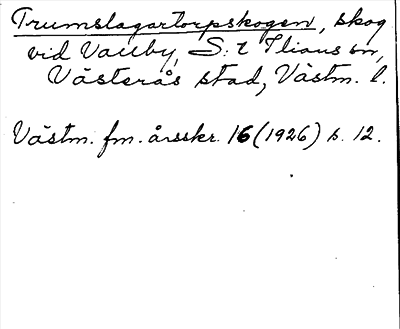 Trumslagartorpskogen, skog
vid Vallby, S:t Ilians sn,
Västerås stad, Västm. l.
Västm. fm. årsskr. 16 (1926) s. 12.